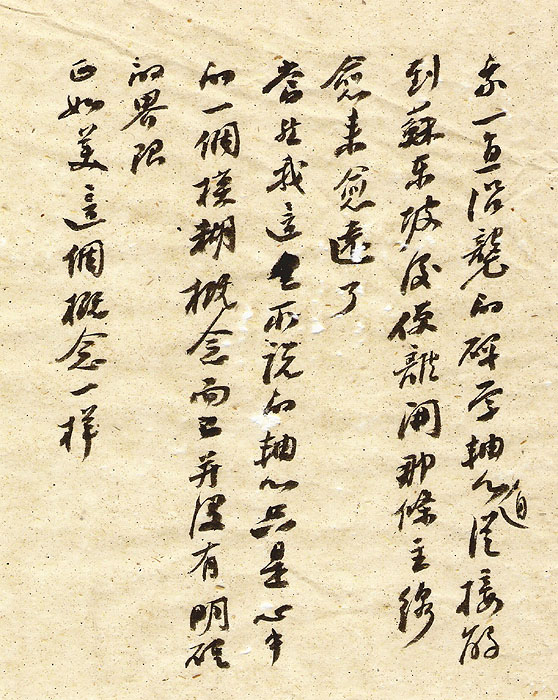 我一直沿袭的碑学轴心自从接触
到蘇东坡后便離開那條主線
愈来愈遠了
當然我這里所說的轴心只是心中
的一個模糊概念而已并沒有明確
的界限
正如美這個概念一样